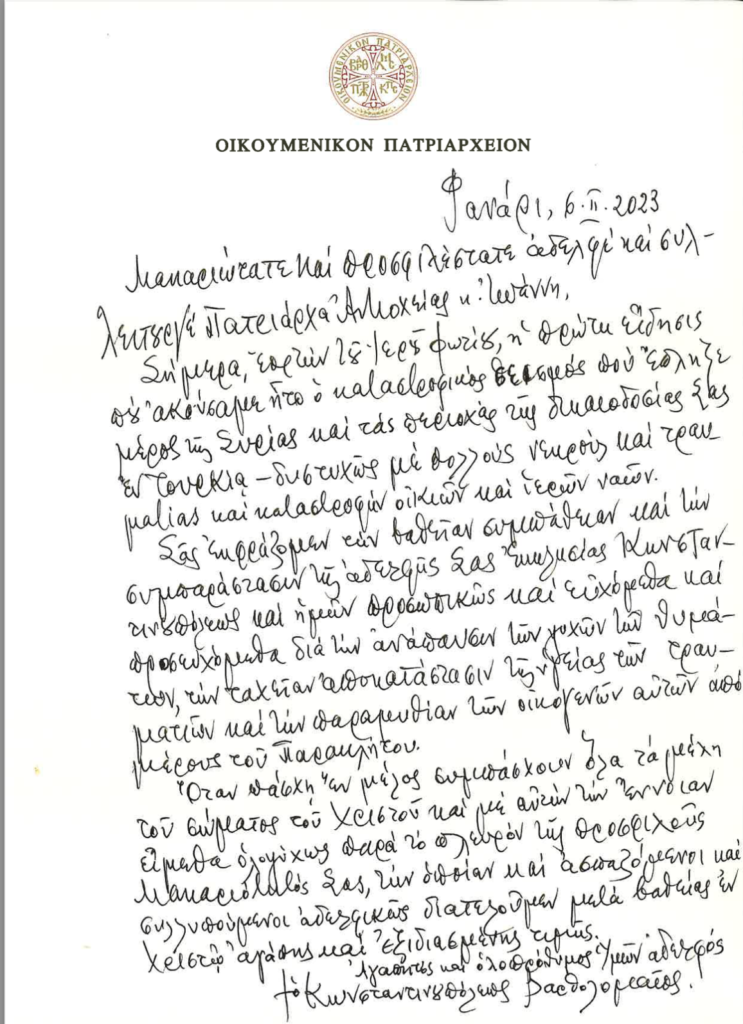 ΟΙΚΟΥΜΕΝΙΚΟΝ ΠΑΤΡΙΑΡΧΕΙΟΝ
ΟΙΚΟΥΜΕΝΙΚΟΝ ΠΑΤΡΙΑΡΧΕΙΟΝ
Φανάρι, 6.II.2023
Μακαριώτατε καὶ προσφιλέστατε ἀδελφὲ καὶ συλ-
λειτουργὲ Πατριάρχα Ἀντιοχείας κ. Ἰωάννη,
Σήμερα, ἑορτὴν τοῦ Ἱεροῦ Φωτίου, ἡ πρώτη εἴδησις
ποὺ ἀκούσαμε ἦτο ὁ καταστροφικὸς σεισμὸς ποὺ ἔπληξε
μέρος τῆς Συρίας καὶ τὰς περιοχὰς τῆς δικαιοδοσίας Σας
ἐν Τουρκίᾳ – δυστυχῶς μὲ πολλοὺς νεκροὺς καὶ τραυ-
ματίας καὶ καταστροφὴν οἰκιῶν καὶ ἱερῶν ναῶν.
Σᾶς ἐκφράζομεν τὴν βαθεῖαν συμπάθειαν καὶ τὴν
συμπαράστασιν τῆς ἀδελφῆς Σας Ἐκκλησίας Κωνσταν-
τινουπόλεως καὶ ἡμῶν προσωπικῶς καὶ εὐχόμεθα καὶ
προσευχόμεθα διὰ τὴν ἀνάπαυσιν τῶν ψυχῶν τῶν θυμά-
των, τὴν ταχεῖαν ἀποκατάστασιν τῆς ὑγείας τῶν τραυ-
ματιῶν καὶ τὴν παραμυθίαν τῶν οἰκογενῶν αὐτῶν ἀπὸ
μέρους τοῦ Παρακλήτου.
Ὅταν πάσχῃ ἓν μέλος συμπάσχουν ὅλα τὰ μέλη
τοῦ σώματος τοῦ Χριστοῦ καὶ μὲ αὐτὴν τὴν ἔννοιαν
εἴμεθα ὁλοψύχως παρὰ τὸ πλευρὸν τῆς προσφιλοῦς
Μακαριότητός Σας, τὴν ὁποίαν καὶ ἀσπαζόμενοι καὶ
συλλυπούμενοι ἀδελφικῶς διατελοῦμεν μετὰ βαθείας ἐν
Χριστῷ ἀγάπης καὶ ἐξιδιασμένης τιμῆς.
Ἀγαπητὸς καὶ ὁλοπρόθυμος ὑμῶν ἀδελφός
† ὁ Κωνσταντινουπόλεως Βαρθολομαῖος.